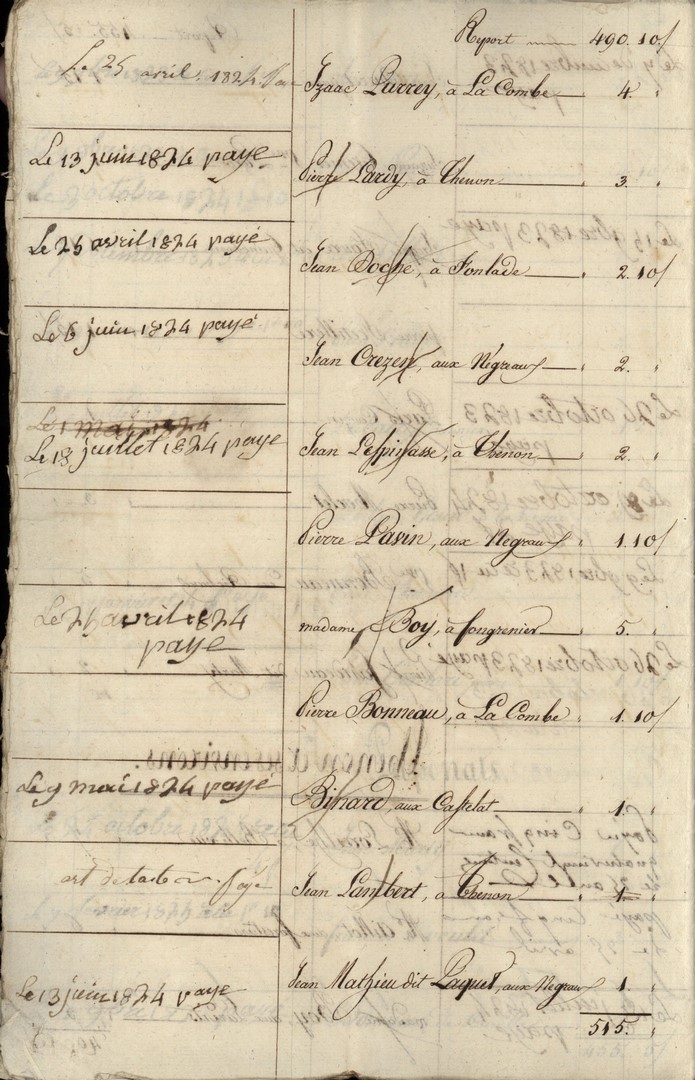 Report 490. 10/
Le 25 avril. 1824 Paye Izaac Larrey, à La Combe 4. "
Le 13 juin 1824 payé Pierre Lardy, à Chenon 3. "
Le 25 avril 1824 payé Jean Doche, à Fontade " 2. 10/
Le 6 juin 1824 payé Jean Crezen, aux Négreaux " 2. "
Le 1 mai 1824
Le 18 juillet 1824 paye Jean Lespinasse, à Chenon " 2. "
Pierre Pasin, aux Negraux " 1. 10/
Le 25 avril 1824 madame Boy, à fongrenier 5. "
paye
Pierre Bonneau, à La Combe " 1. 10/
Le 9 mai 1824 payé Binard, aux Castelat " 1. "
Paye Jean Lambert, à Chenon " 1. "
Le 13 juin 1824 paye Jean Mathieu dit Paquet, aux Negraux 1. "
515. "